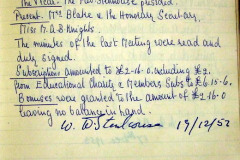 The Vicar. The Rev. Stenhouse presided.
Present. Mrs Blake & the Honorary Secretary.
Miss M. A. B. Knights.
The minutes of the last Meeting were read and
duly signed.
Subscriptions amounted to £2-16-0. including £2.
from Educational Charity & Members Subs to £6.15-6.
Bonuses were granted to the amount of £2-16-0
leaving no balance in hand.
W. D. Stenhouse 19/12/52